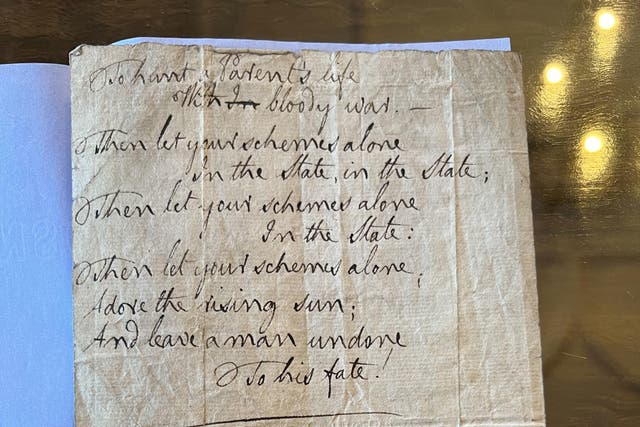 To hunt a Parent's life
Wth In bloody war. —
Then let your schemes alone
In the State, in the State;
Then let your schemes alone
In the State:
Then let your schemes alone,
Adore the rising sun;
And leave a man undone
To his fate!